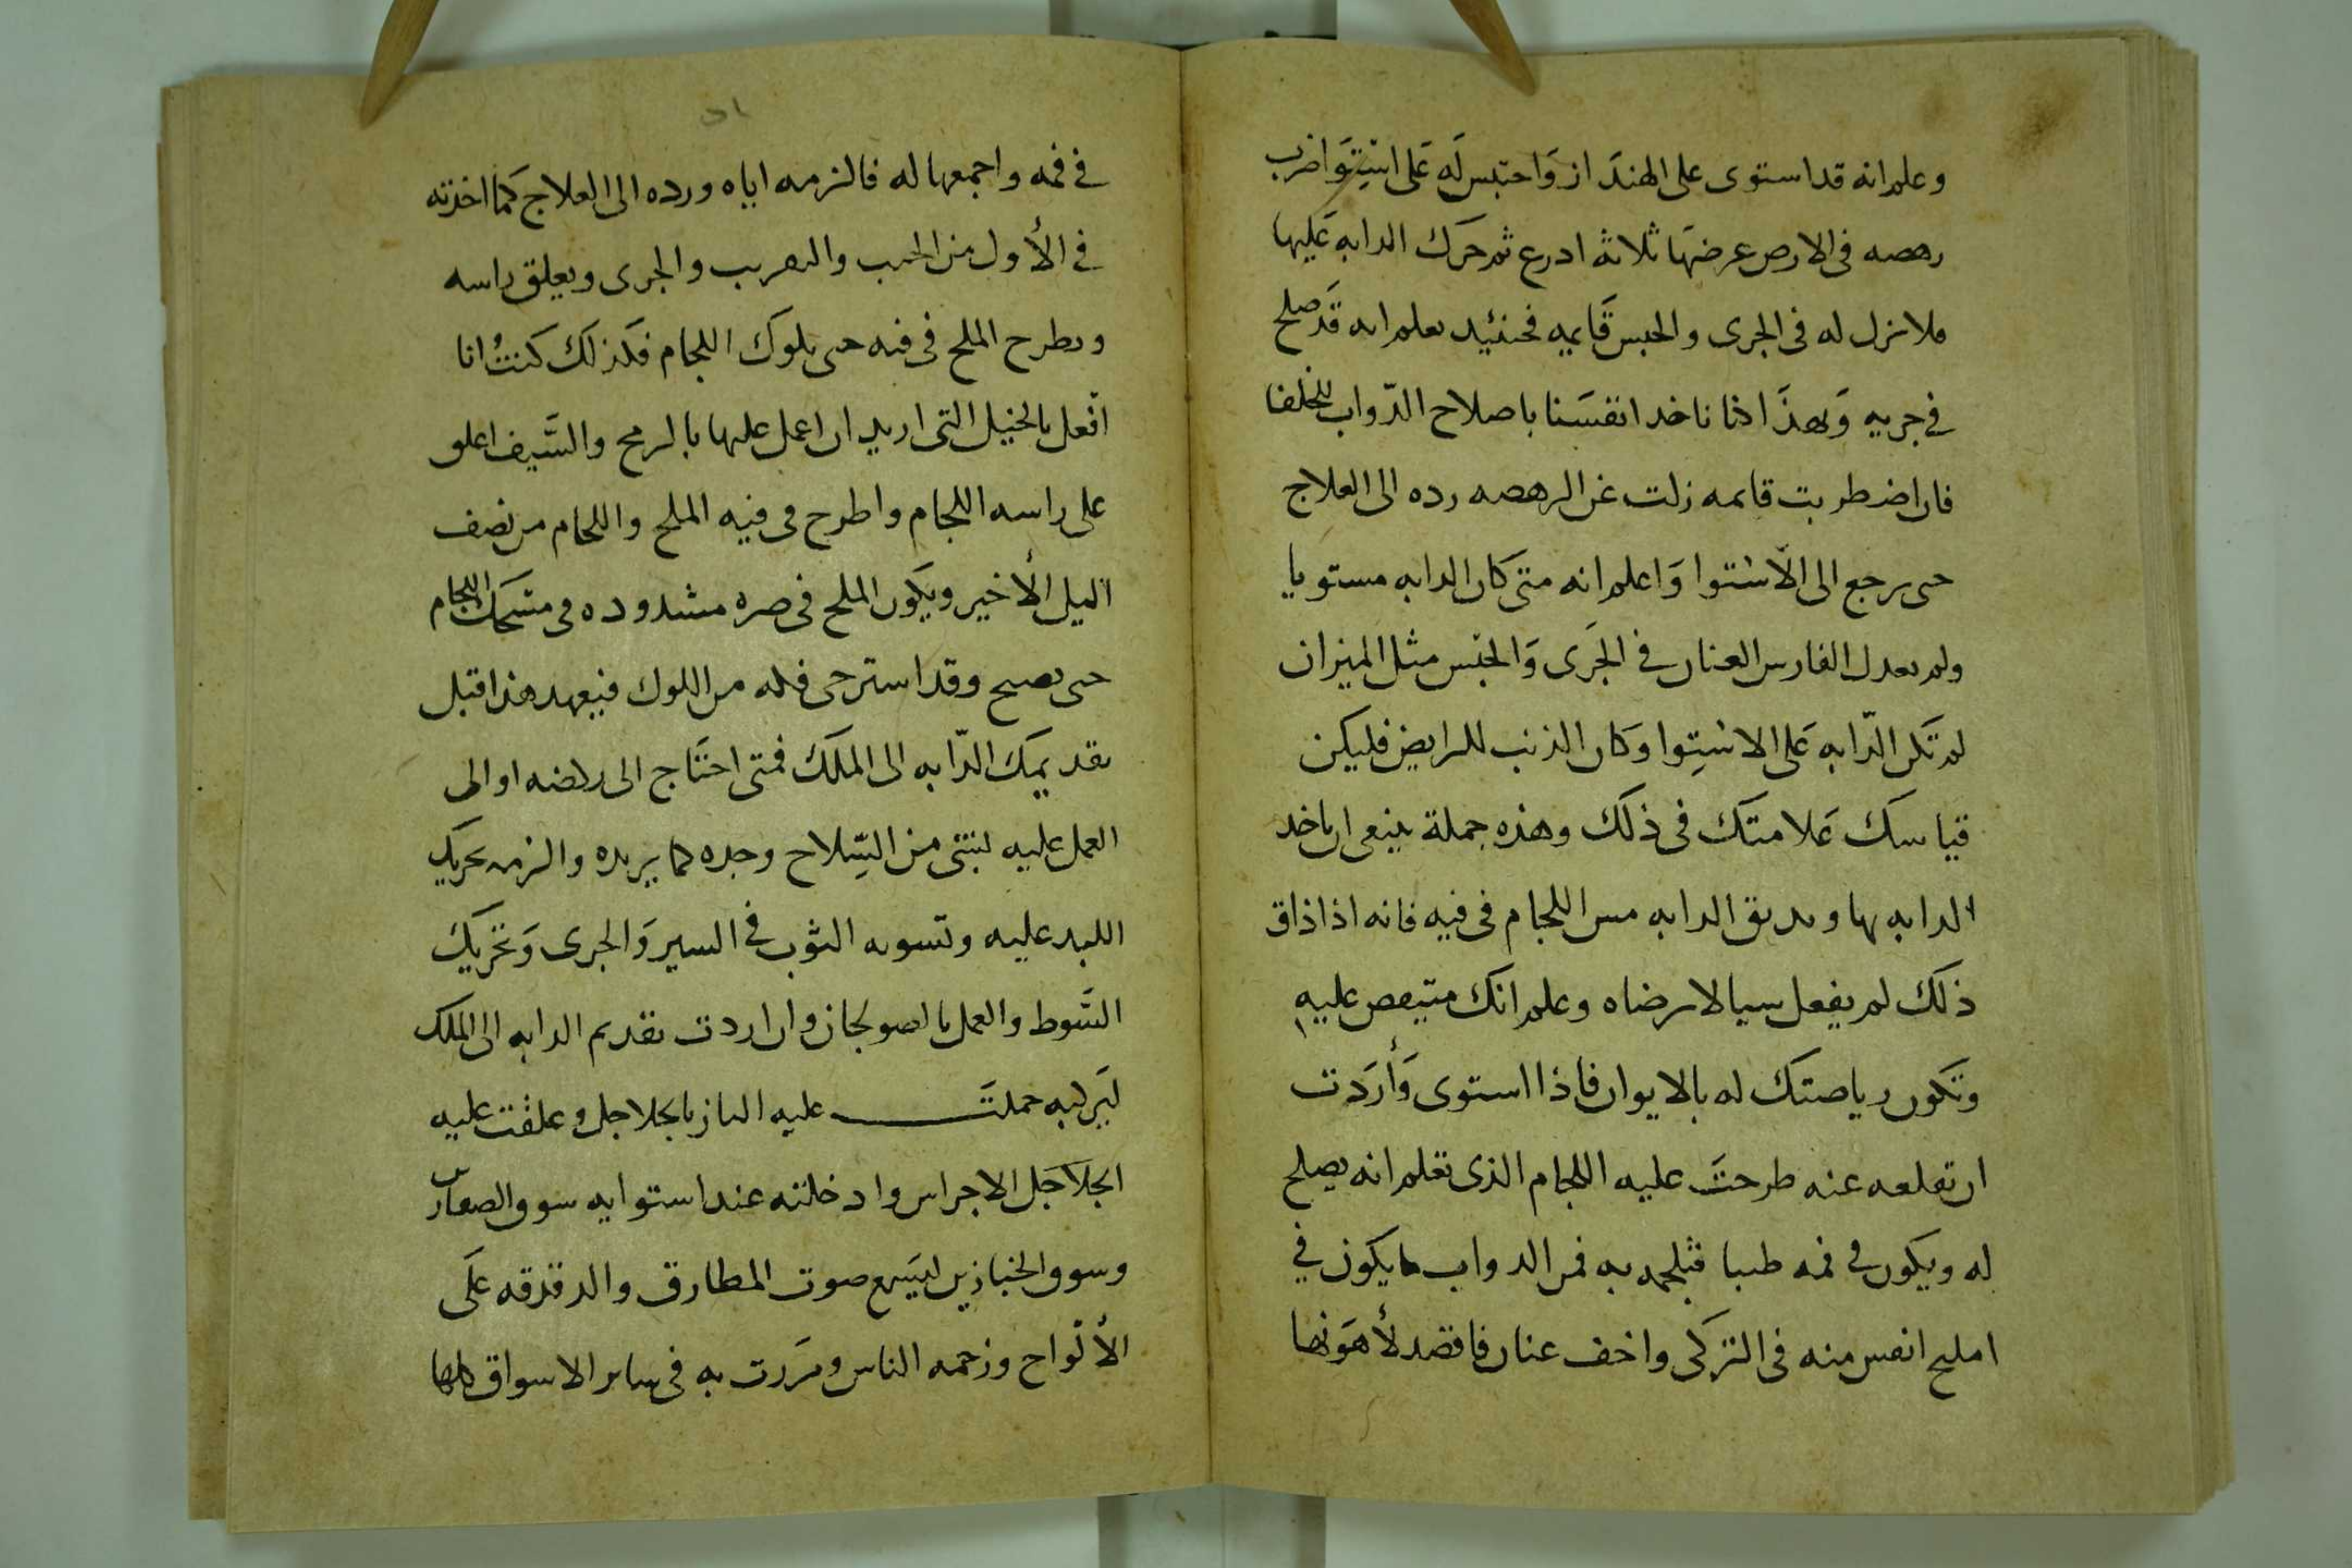 وعلم انه قد استوى على الهنداز واحتبس له على استوا ضرب
رهصه فى الارض عرضها ثلاثة ادرع ثم حرك الدابه عليها
فلا نزل له فى الجرى والحبس قايمه فحنئيد تعلم انه قد صلح
فى جريه وبهذا كنا ناخد انفسنا باصلاح الدواب للخلفا
فان اضطربت قائمه زلت عن الرهصه رده الى العلاج
حتى يرجع الى الاستوا واعلم انه متى كان الدابه مستويا
ولم يعدل الفارس العنان فى الجرى والحبس مثل الميزان
لم تكن الدابه على الاستوا وكان الذنب للرايض فليكن
قياسك علامتك فى ذلك وهذه جملة ينبغى ان ياخد
الدابه بها ويديق الدابه مس اللجام فى فيه فانه اذا ذاق
ذلك لم يفعل سيا لا ترضاه وعلم انك عليه
وتكون رياضتك له بالايوان فاذا استوى وأردت
ان تقلعه عنه طرحت عليه اللجام الذى تعلم انه يصلح
له ويكون فى فمه طيبا فتلجمه به فمن الدواب ما يكون فى
املح انفس منه فى التركى واخف عنان فاقصد لأهونها
فى فمه واجمعها له فالزمه اياه ورده الى العلاج كما اخدته
فى الأول من الخبب والتقريب والجرى ويعلق راسه
ويطرح الملح فى فيه حتى يلوك اللجام فكذلك كنت انا
افعل بالخيل التى اريد ان اعمل عليها بالرمح والسيف اعلق
على راسه اللجام واطرح فى فيه الملح واللجام من نصف
الليل الأخير ويكون الملح فى صره مشدوده فى مسحك اللجام
حتى يصبح وقد استرخى فكه من اللوك فتعهد هذا قبل
تقديمك الدابه الى الملك فمتى احتاج الى ركضه او الى
العمل عليه بشئ من السلاح وجده كما يريده والزمه تحريك
اللبد عليه وتسويه الثوب فى السير والجرى وتحريك
السوط والعمل بالصولجان وان اردت تقديم الدابه الى الملك
ليركبه حملت عليه الباز بالجلاجل وعلقت عليه
الجلاجل الاجراس وادخلته عند استوايه سوق الصفارين
وسوق الخبازين ليسمع صوت المطارق والدقدقه على
الألواح وزحمه الناس ومررت به فى ساير الاسواق كلها